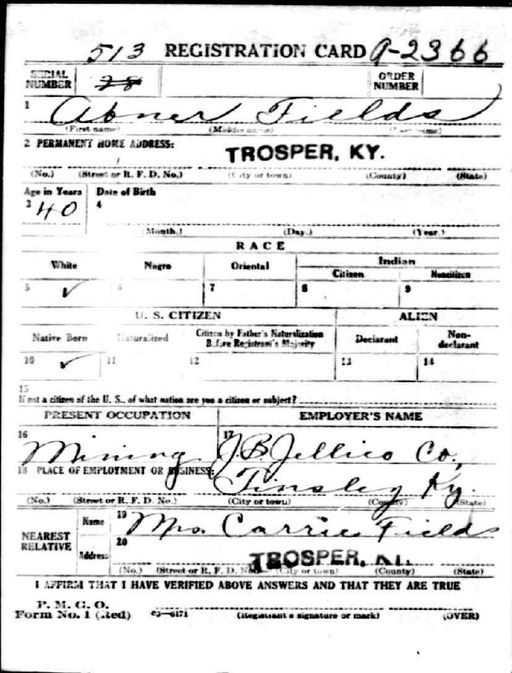 513 REGISTRATION CARD A-2366
SERIAL NUMBER 28 ORDER NUMBER
1 Abner Fields
(First name) (Middle name) (Last name)
2 PERMANENT HOME ADDRESS:
TROSPER, KY.
(No.) (Street or R. F. D. No.) (City or town) (County) (State)
Age in Years Date of Birth
3 40 4
(Month.) (Day.) (Year.)
RACE
White Negro Oriental Indian
Citizen Noncitizen
5 ✓ 6 7 8 9
U. S. CITIZEN ALIEN
Native Born Naturalized Citizen by Father's Naturalization Before Registrant's Majority Declarant Non-declarant
10 ✓ 11 12 13 14
15
If not a citizen of the U. S., of what nation are you a citizen or subject?
PRESENT OCCUPATION EMPLOYER'S NAME
16 Mining 17 J.B. Jellico Co.,
18 PLACE OF EMPLOYMENT OR BUSINESS:
Tinsley Ky.
(No.) (Street or R. F. D. No.) (City or town) (County) (State)
NEAREST RELATIVE Name 19 Mrs. Carrie Fields
Address 20 TROSPER, KY.
(No.) (Street or R. F. D. No.) (City or town) (County) (State)
I AFFIRM THAT I HAVE VERIFIED ABOVE ANSWERS AND THAT THEY ARE TRUE
P. M. G. O.
Form No. 1 (Red) 03-6171 (Registrant's signature or mark) (OVER)